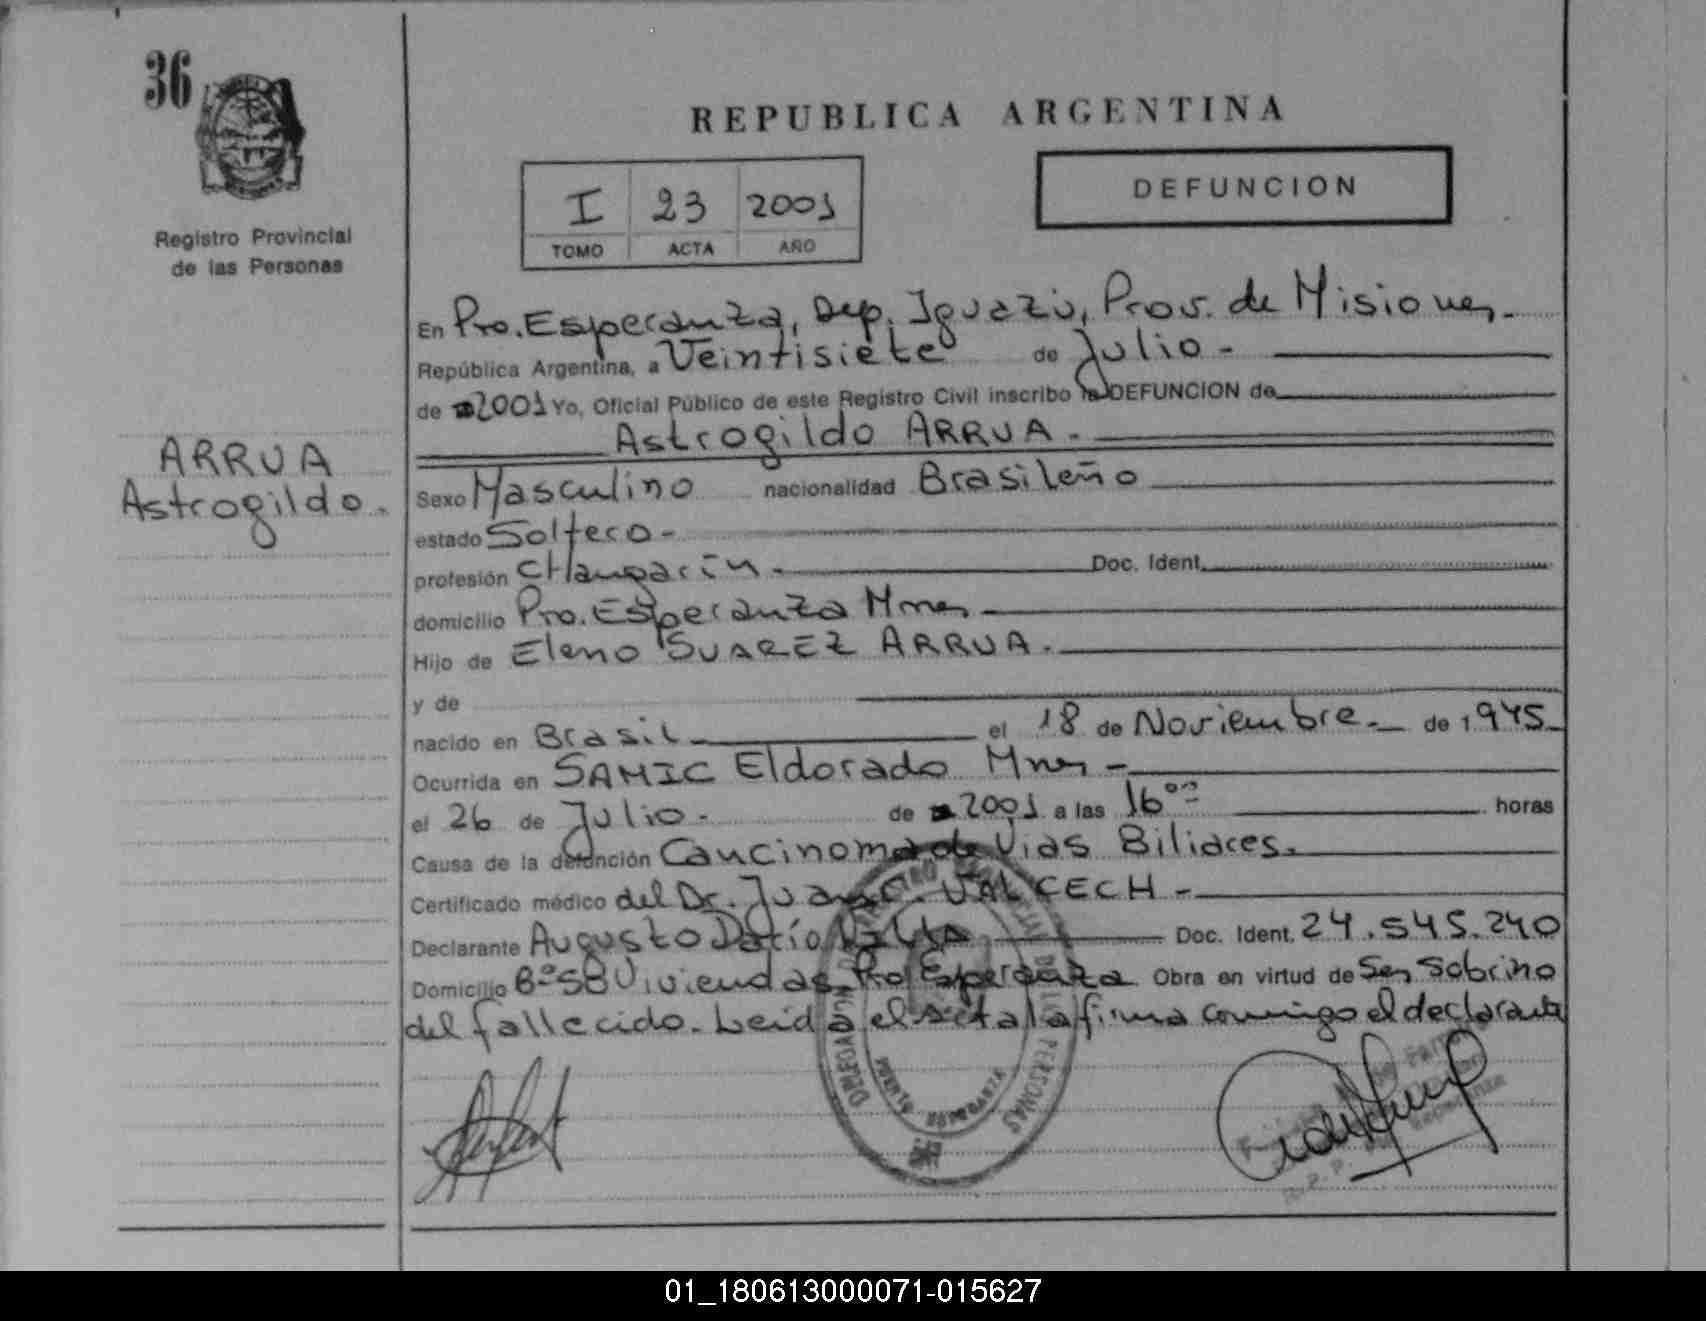 36
Registro Provincial
de las Personas
ARRUA
Astrogildo.
REPUBLICA ARGENTINA
I 23 2001
TOMO ACTA AÑO
DEFUNCION
En Pto. Esperanza, Dep. Iguazú, Prov. de Misiones.
República Argentina, a Veintisiete de Julio -
de 2001 Yo, Oficial Público de este Registro Civil inscribo la DEFUNCION de
Astrogildo ARRUA.
Sexo Masculino nacionalidad Brasileño
estado Soltero-
profesión CHangarín. Doc. Ident.
domicilio Pto. Esperanza Mnes
Hijo de Eleno SUAREZ ARRUA.
y de
nacido en Brasil el 18 de Noviembre. de 1945
Ocurrida en SAMIC Eldorado Mnes -
el 26 de Julio. de 2001 a las 16 horas
Causa de la defunción Caucinoma de Vias Biliares.
Certificado médico del Dr. Juan C. VALCECH -
Declarante Augusto Darío Doc. Ident. 24.545.240
Domicilio Bº 58 Viviendas Pto Esperanza Obra en virtud de Ser Sobrino
del fallecido. Leida el acta la firma conmigo el declarante
DELEGACION PERSONAS
PUERTO ESPERANZA
01_180613000071-015627